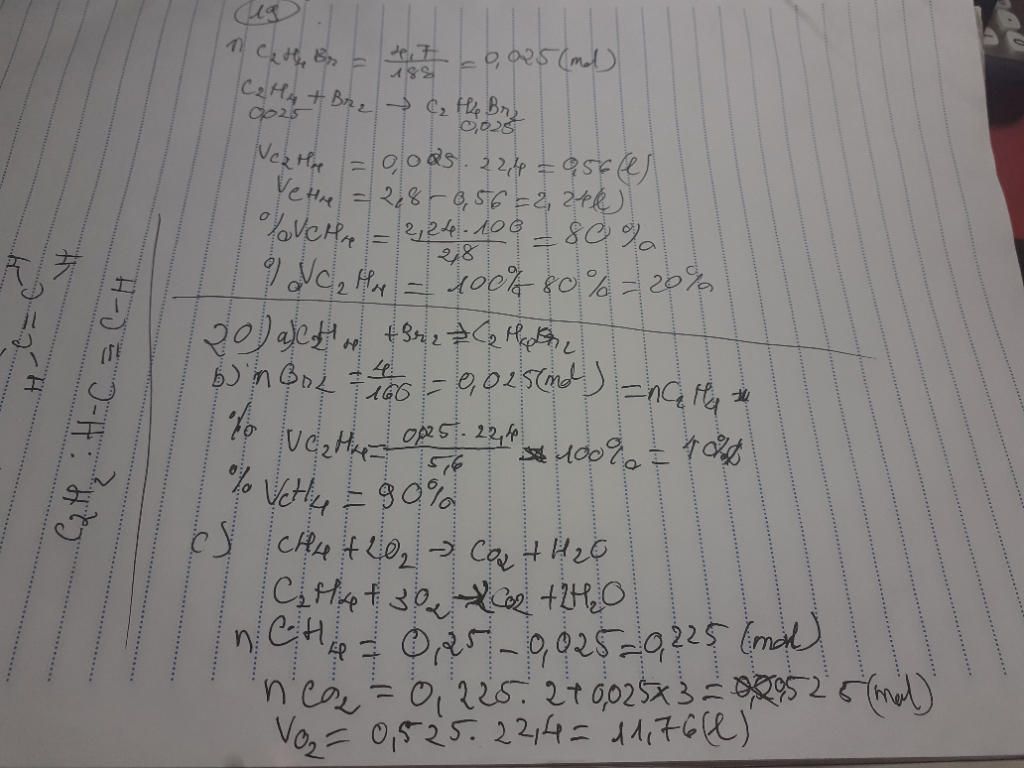 19
n C2H4Br2 = 4,7/188 = 0,025 (mol)
C2H4 + Br2 → C2H4Br2
0,025 0,025
VC2H4 = 0,025 . 22,4 = 0,56 (l)
VCH4 = 2,8 - 0,56 = 2,24 (l)
%VCH4 = 2,24.100/2,8 = 80%
%VC2H4 = 100% - 80% = 20%
20) a) C2H4 + Br2 → C2H4Br2
b) nBr2 = 4/160 = 0,025 (mol) = nC2H4
% VC2H4 = 0,025 . 22,4/5,6 100% = 10%
% VCH4 = 90%
c) CH4 + 2O2 → CO2 + H2O
C2H4 + 3O2 → 2CO2 + 2H2O
n CH4 = 0,25 - 0,025 = 0,225 (mol)
n CO2 = 0,225 . 2 + 0,025 x 3 = 0,525 (mol)
VO2 = 0,525 . 22,4 = 11,76 (l)
H-C=C-H
H H
C2H2 : H-C≡C-H